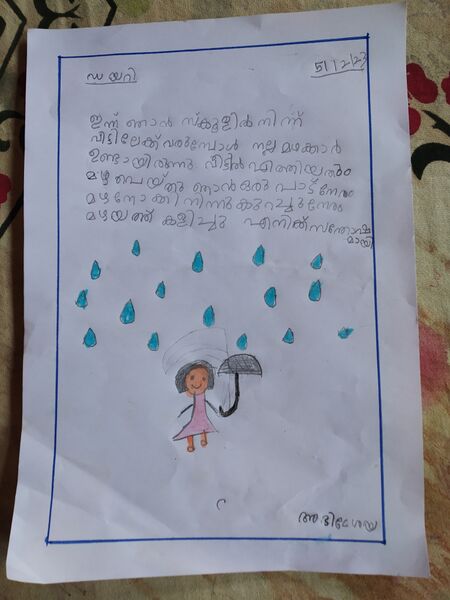 ഡയറി
5/12/23
ഇന്ന് ഞാൻ സ്കൂളിൽ നിന്ന്
വീട്ടിലേക്ക് വരുമ്പോൾ നല്ല മഴക്കാർ
ഉണ്ടായിരുന്നു വീട്ടിൽ എത്തിയതും
മഴ പെയ്തു ഞാൻ ഒരു പാട് നേരം
മഴ നോക്കി നിന്നു കുറച്ചുനേരം
മഴയത്ത് കളിച്ചു എനിക്ക് സന്തോഷ
മായി